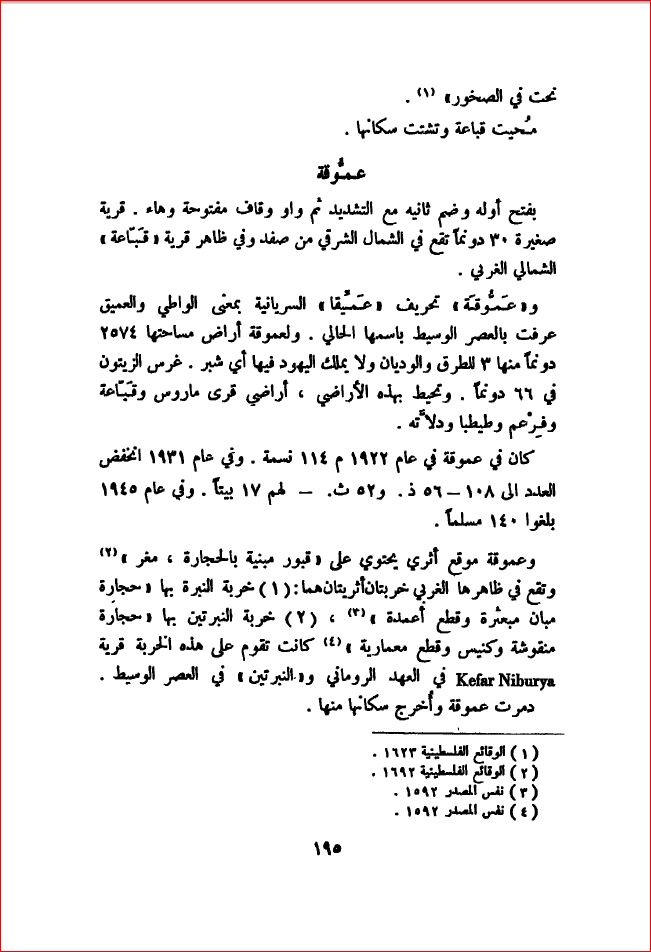 نحت في الصخور» (١) .
مُحيت قباعة وتشتت سكانها .
عمُّوقة
بفتح أوله وضم ثانيه مع التشديد ثم واو وقاف مفتوحة وهاء . قرية
صغيرة ٣٠ دونماً تقع في الشمال الشرقي من صفد وفي ظاهر قرية «قَبّاعة»
الشمالي الغربي .
و«عَمُّوقَة» تحريف «عَمِّيقا» السريانية بمعنى الواطي والعميق
عرفت بالعصر الوسيط باسمها الحالي . ولعموقة أراض مساحتها ٢٥٧٤
دونماً منها ٣ للطرق والوديان ولا يملك اليهود فيها أي شبر . غرس الزيتون
في ٦٦ دونماً . وتحيط بهذه الأراضي ، أراضي قرى ماروس وقَبّاعة
وفِرْعم وطيطبا ودلاّته .
كان في عموقة في عام ١٩٢٢ م ١١٤ نسمة . وفي عام ١٩٣١ انخفض
العدد الى ١٠٨ – ٥٦ ذ. و٥٢ ث. – لهم ١٧ بيتاً . وفي عام ١٩٤٥
بلغوا ١٤٠ مسلماً .
وعموقة موقع أثري يحتوي على «قبور مبنية بالحجارة ، مغر» (٢)
وتقع في ظاهرها الغربي خربتان أثريتان هما: (١) خربة النبرة بها «حجارة
مبان مبعثرة وقطع أعمدة» (٣) ، (٢) خربة النبرتين بها «حجارة
منقوشة وكنيس وقطع معمارية» (٤) كانت تقوم على هذه الخربة قرية
Kefar Niburya في العهد الروماني و«النبرتين» في العصر الوسيط .
دمرت عموقة وأُخرج سكانها منها .
(١) الوقائع الفلسطينية ١٦٢٣ .
(٢) الوقائع الفلسطينية ١٦٩٢ .
(٣) نفس المصدر ١٥٩٢ .
(٤) نفس المصدر ١٥٩٢ .
١٩٥